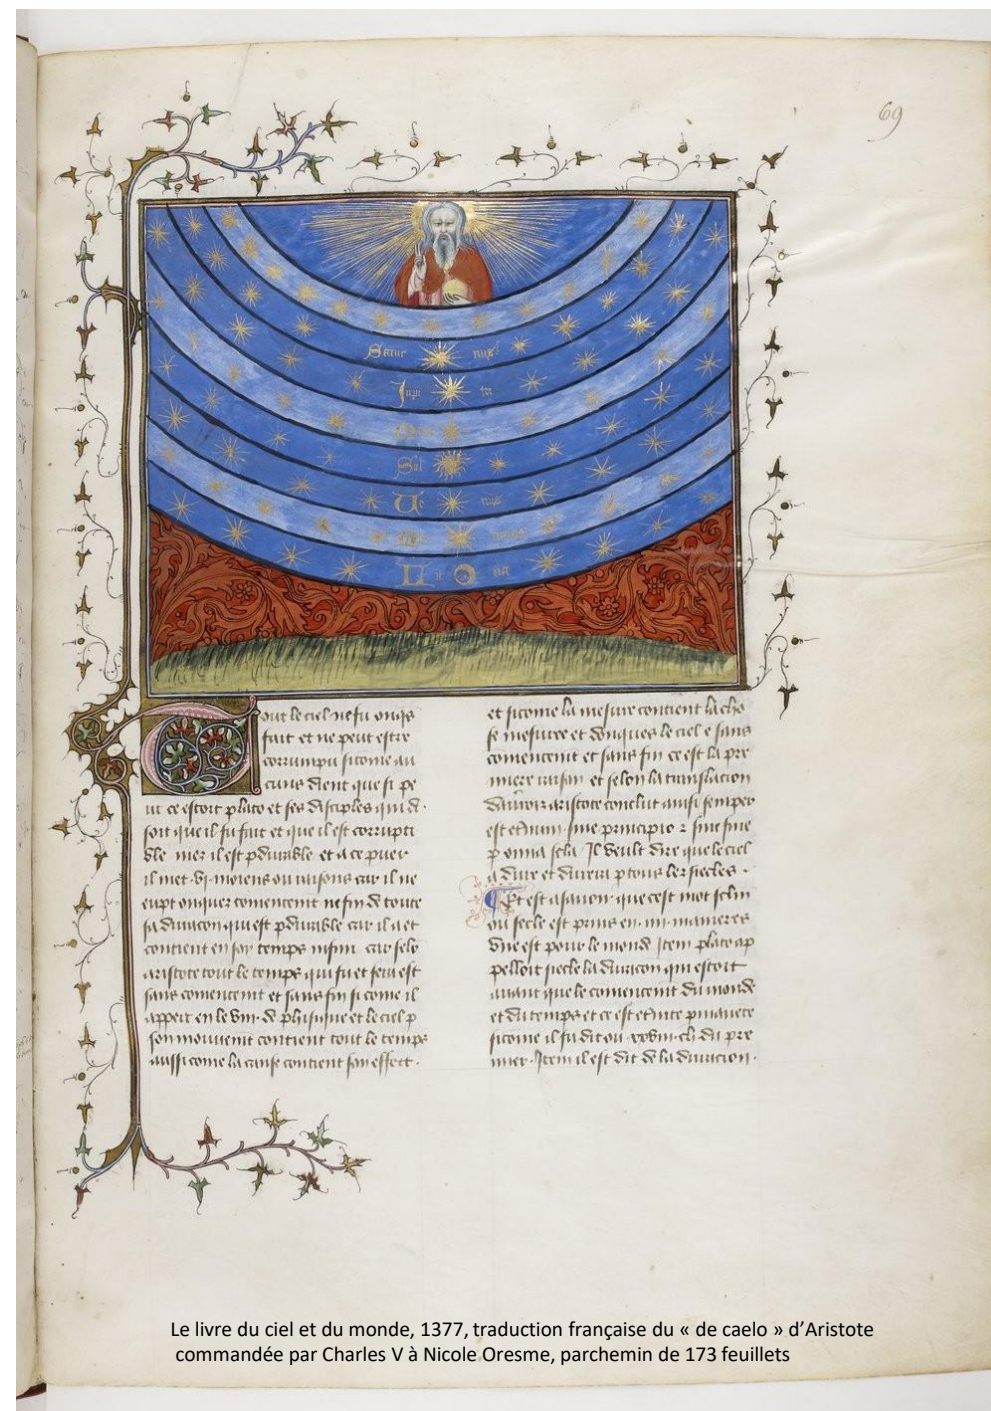 69
Satur nus
Jupi ter
Mars
Sol
Ve nus
Mer
Lu na
Tout le ciel ne fu onqs
fait et ne peut estre
corrumpu si come au
cuns dient que si pe
ut ce estoit plato et ses disciples qui di
soit que il fu fait et que il est corrupti
ble mez il est pdurable et a ce
il met .vi. moiens ou raisons car il ne
onques comencemt ne fin de toute
sa duracon qui est pdurable car il a et
contient en soy temps infini car selo
aristote tout le temps qui fu et sera est
sans comencemt et sans fin si come il
appert en le viii. de phisique et le ciel p
son mouvemt contient tout le temps
aussi come la cause contient son effect.
et si come la mesure contient la cho
se mesuree et donques le ciel e sans
comencemt et sans fin ce est la pre
miere raison et selon la translacion
aristote conclut ainsi semper
est sine principio z sine fine
p omnia scla. Il veult dire que le ciel
a dure et durera p tous les siecles.
Et est a savoir que cest mot sclm
ou secle est prins en .iii. manieres
une est pour le monde Item plato ap
pelloit siecle la duracon qui estoit
avant que le comencemt du monde
et du temps et ce est
si come il fu dit ou ch. du pre
mier. Item il est dit de la duracion.
Le livre du ciel et du monde, 1377, traduction française du « de caelo » d’Aristote
commandée par Charles V à Nicole Oresme, parchemin de 173 feuillets